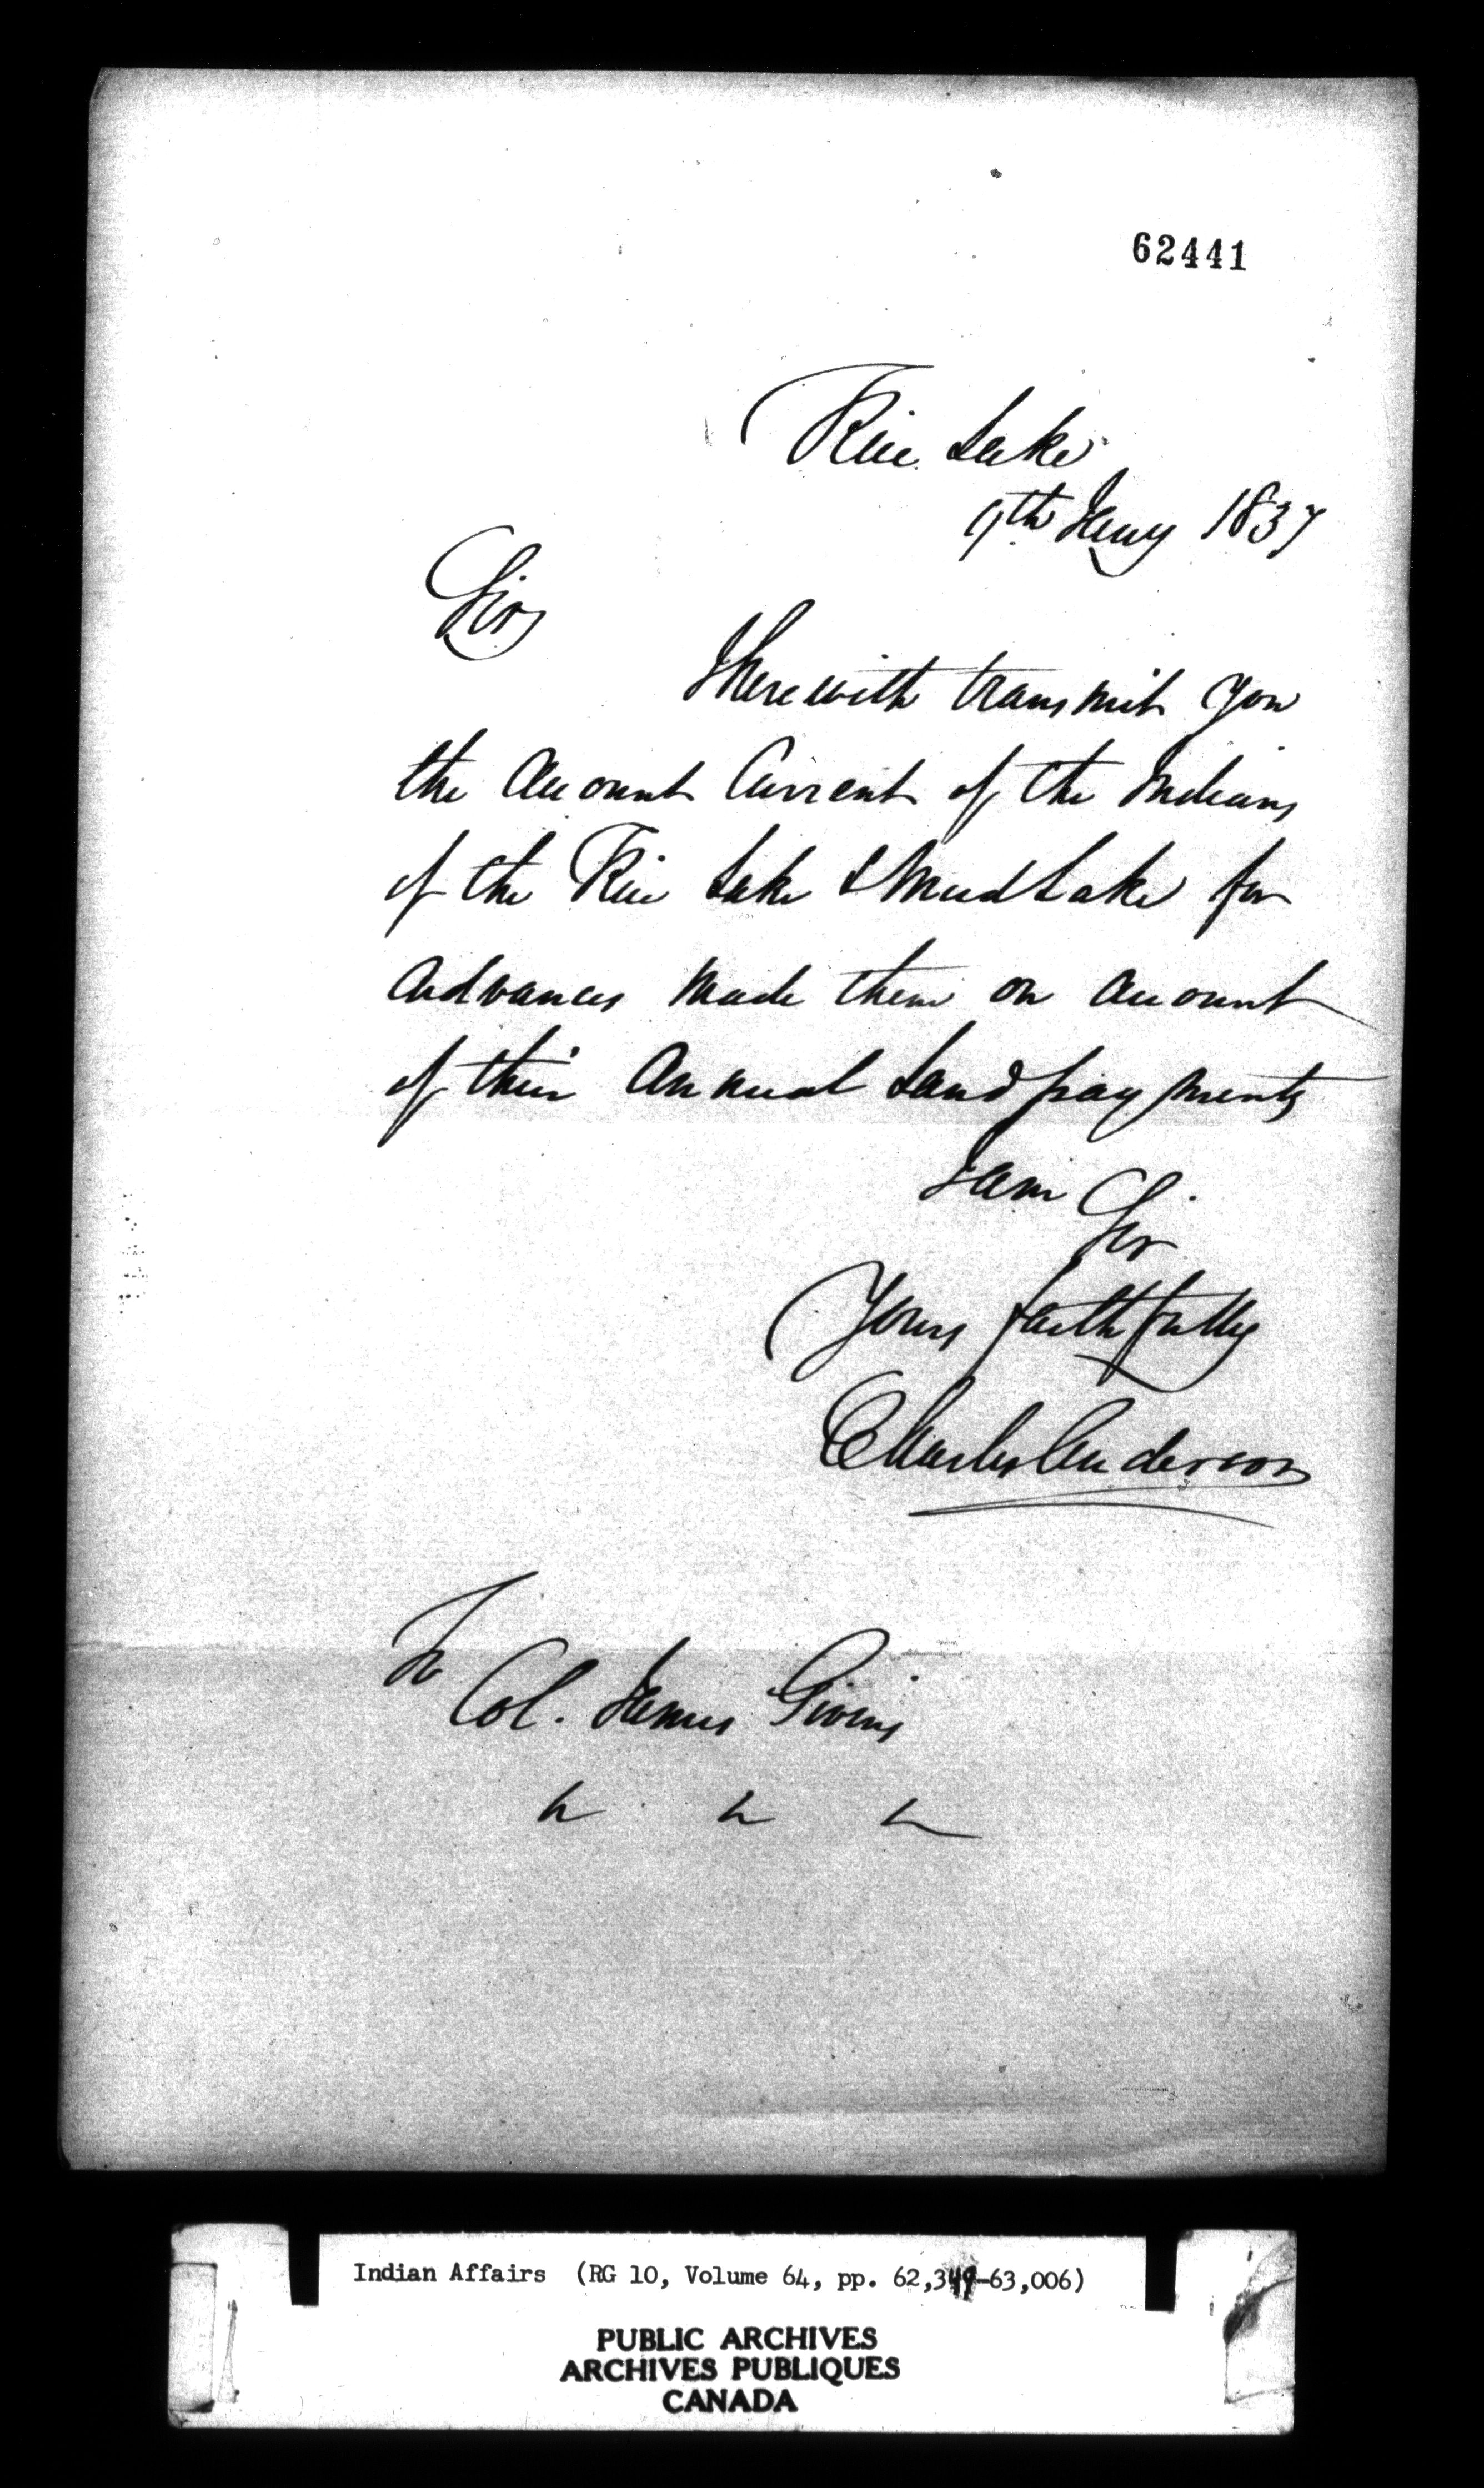 62441
Rice Lake
9th Jany 1837
Sir,
I herewith transmit you
the Account Current of the Indians
of the Rice Lake & Mud Lake for
Advances made them on account
of their Annual Land payments
I am Sir
Yours faithfully
Charles Anderson
To
Col. James Givins
Indian Affairs (RG 10, Volume 64, pp. 62,349-63,006)
PUBLIC ARCHIVES
ARCHIVES PUBLIQUES
CANADA